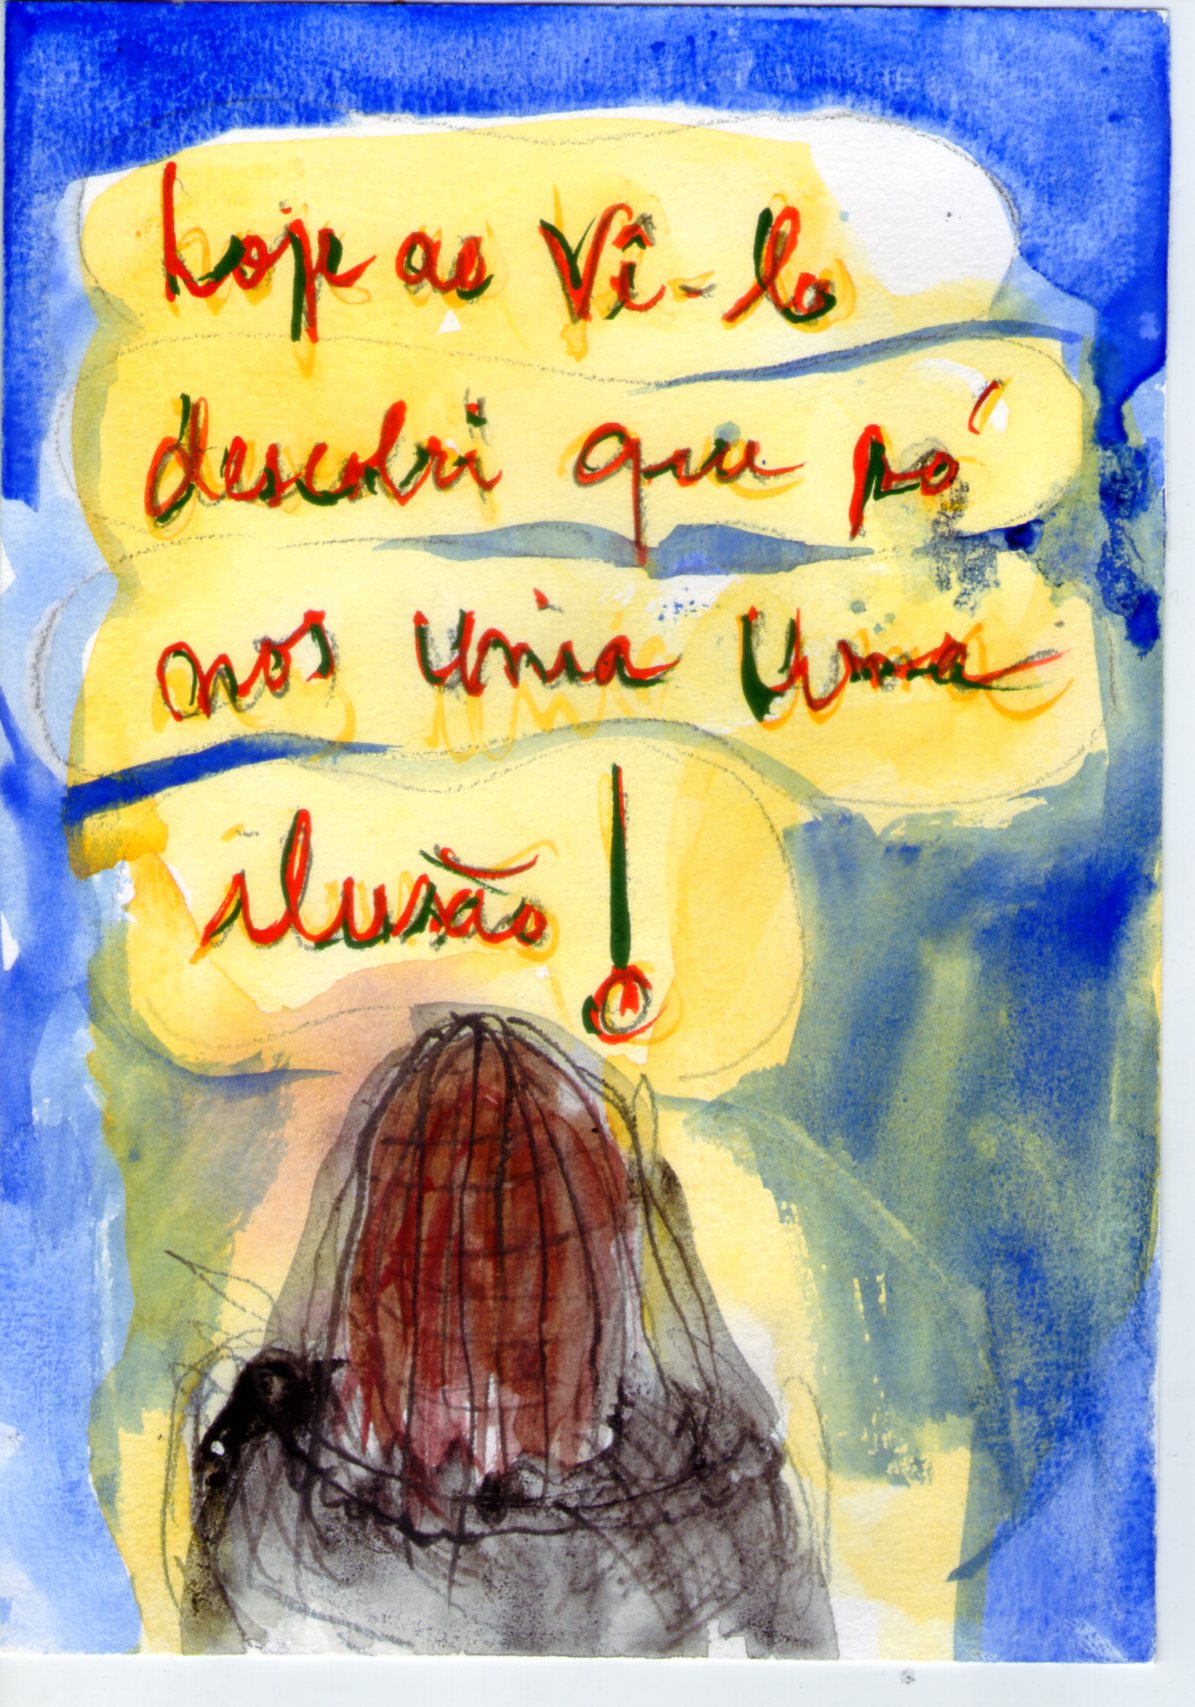 hoje ao vê-lo
descobri que só
nos unia uma
ilusão!